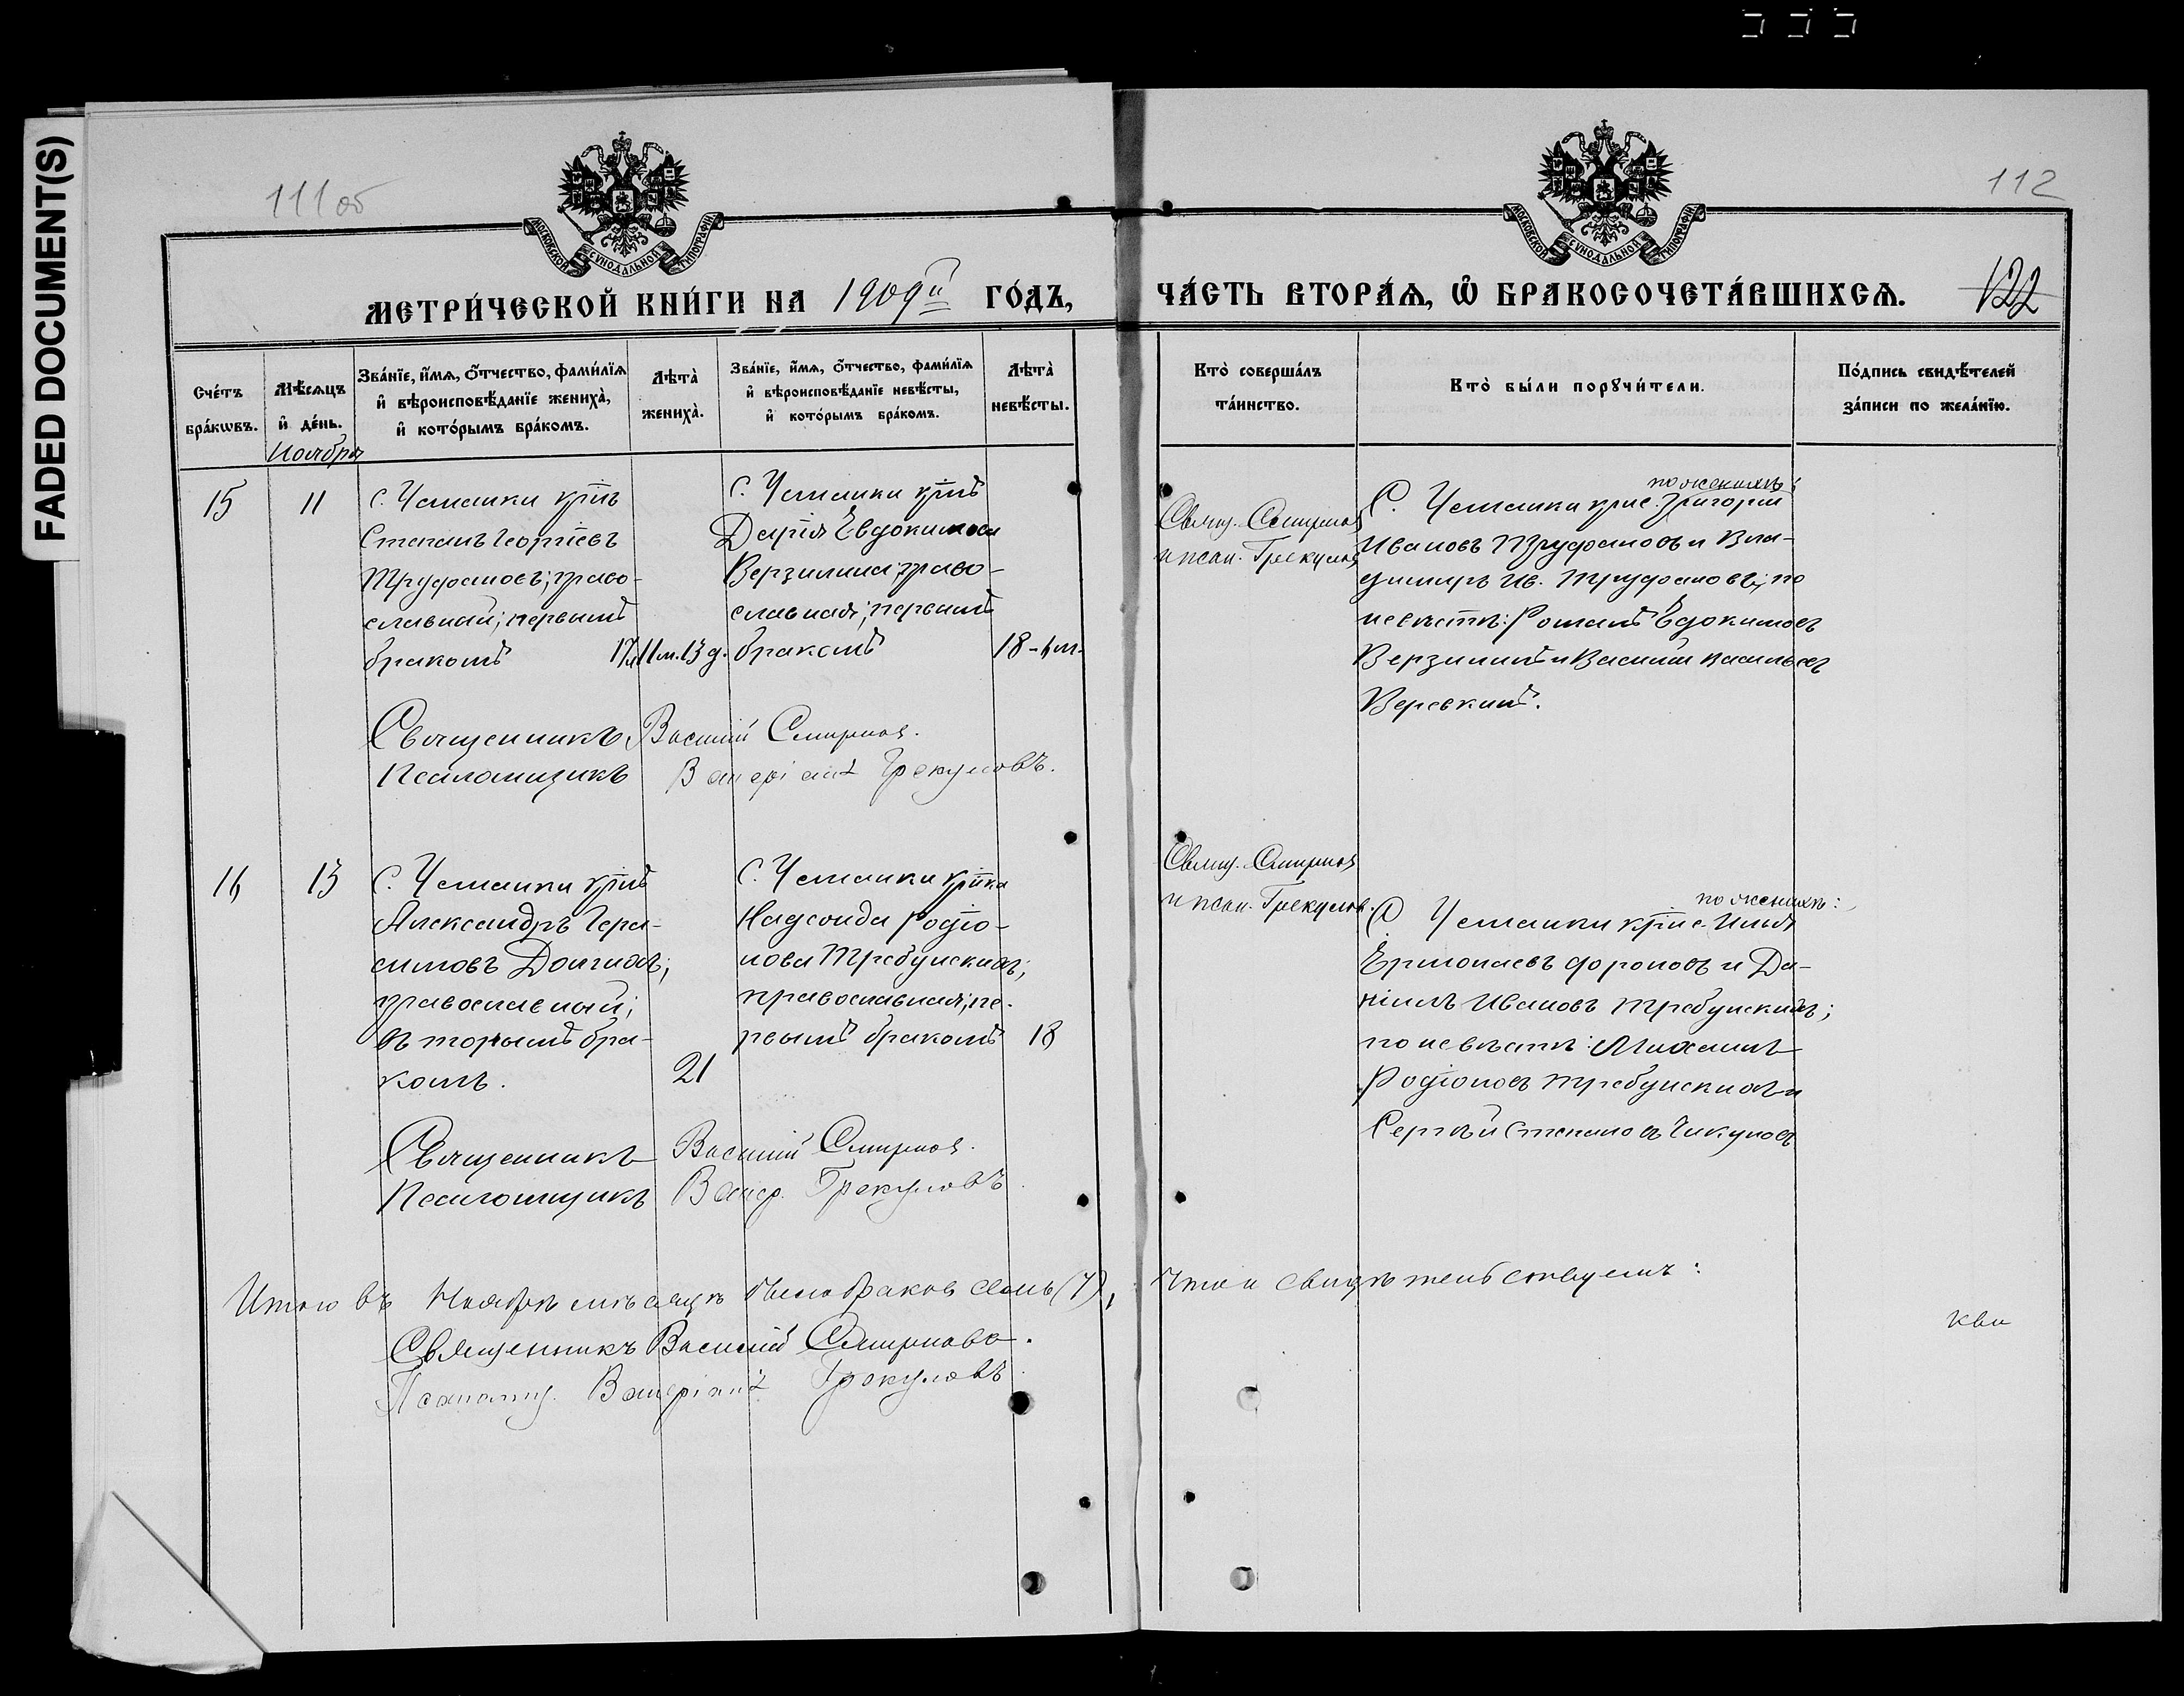 FADED DOCUMENT(S)
111 об
112
МОСКОВСКОЙ СѴНОДАЛЬНОЙ ТИПОГРАФІИ
МОСКОВСКОЙ СѴНОДАЛЬНОЙ ТИПОГРАФІИ
МЕТРИ́ЧЕСКОЙ КНИ́ГИ НА 1909й ГО́ДЪ,
ЧА́СТЬ ВТОРА́Ѧ, Ѽ БРАКОСОЧЕТА́ВШИХСѦ.
122
Сче́тъ бра́кѡвъ.
Мѣ́сяцъ и҆ де́нь.
Зва́нїе, и҆́мѧ, ѻ҆́тчество, фами́лїѧ и҆ вѣроисповѣ́данїе жениха̀, и҆ кото́рымъ бра́комъ.
Лѣта̀ жениха̀.
Зва́нїе, и҆́мѧ, ѻ҆́тчество, фами́лїѧ и҆ вѣроисповѣ́данїе невѣ́сты, и҆ кото́рымъ бра́комъ.
Лѣта̀ невѣ́сты.
Кто̀ соверша́лъ та́инство.
Кто̀ бы́ли порꙋчи́тели.
По́дпись свидѣ́телей за́писи по жела́нїю.
Ноября
15
11
с. Чеманки кр̃нъ
Степанъ Георгіевъ
Труфановъ; право-
славный; первымъ
бракомъ
17 л 11 м. 13 д.
с. Чеманки
Дарія Евдокимова
Верзилина; право-
славная; первымъ
бракомъ
18 - 6 м.
Свящ. Смирновъ
и псал. Грекуловъ
по женихѣ:
С. Чеманки крне. Григорій
Ивановъ Труфановъ и Вла-
димиръ Ив. Труфановъ; по
невѣстѣ: Романъ Евдокимовъ
Верзилинъ и Василій Васильевъ
Веревкинъ.
Священникъ Василій Смирновъ.
Псаломщикъ Валеріанъ Грекуловъ.
16
13
с. Чеманки кр̃нъ
Александръ Гера-
симовъ Долгихъ;
православный;
вторымъ бра-
комъ.
21
с. Чеманки кр̃нка
Надежда Родіо-
нова Требунскихъ;
православная; пе-
рвымъ бракомъ
18
Свящ. Смирновъ
и псал. Грекуловъ.
по женихѣ:
С. Чеманки кр̃не. Илья
Ермолаевъ Фроловъ и Да-
ніилъ Ивановъ Требунскихъ;
по невѣстѣ: Михаилъ
Родіоновъ Требунскихъ и
Сергѣй Степановъ Чикуновъ
Священникъ Василій Смирновъ.
Псаломщикъ Валер. Грекуловъ.
Итого въ Ноябрѣ мѣсяцѣ было браковъ семь (7), что и свидѣтельствуемъ:
Священникъ Василій Смирновъ.
Псаломщ. Валеріанъ Грекуловъ.